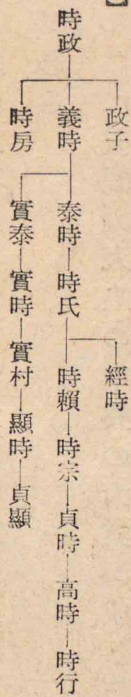 時政
政子
義時
時房
泰時
時氏
經時
時賴
時宗
貞時
高時
時行
實泰
實時
實村
顯時
貞顯